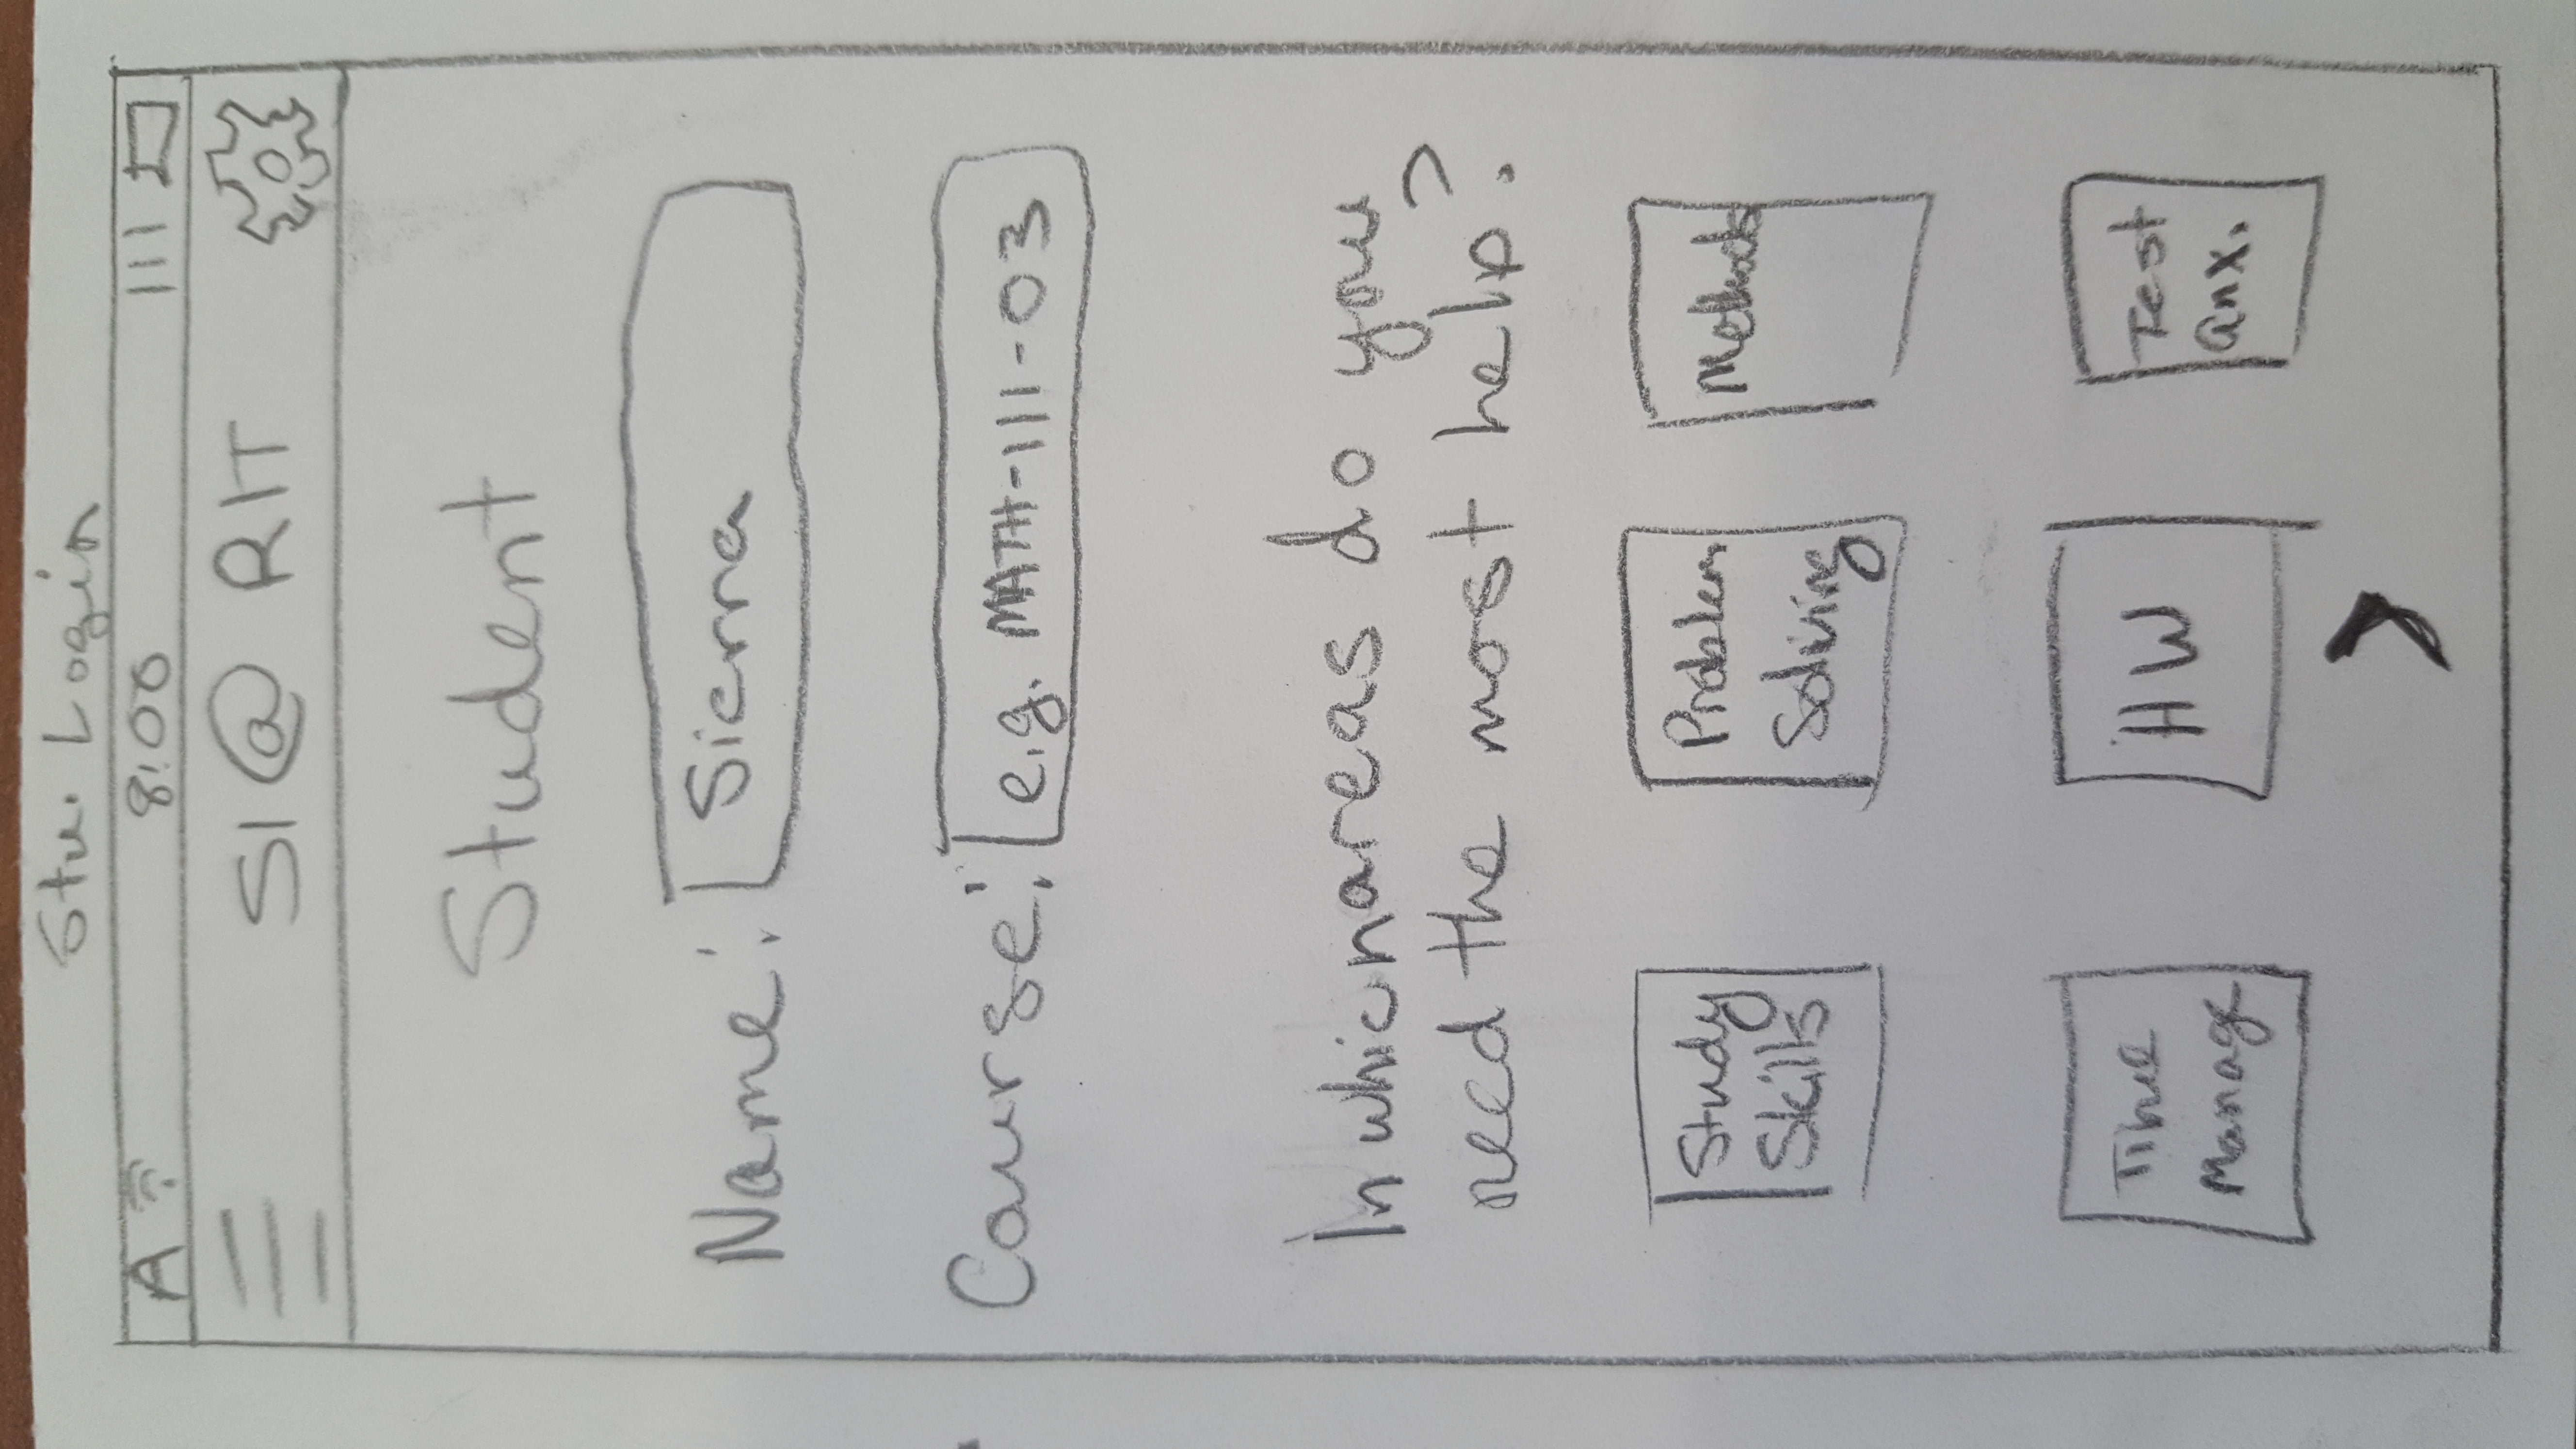 Stu. Login
A 8:00
SI @ RIT
Student
Name: Sierra
Course: e.g. MATH-111-03
In which areas do you
need the most help?
Study
Skills
Problem
Solving
Methods
Time
Manage
HW
Test
anx.